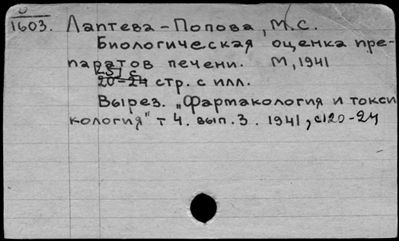 1603. Лаптева-Попова, М.С.
Биологическая оценка пре-
паратов печени. М, 1941
[5] с
20-24 стр. с илл.
Вырез. „Фармакология и токси
кология" т 4. вып. 3. 1941, с120-24